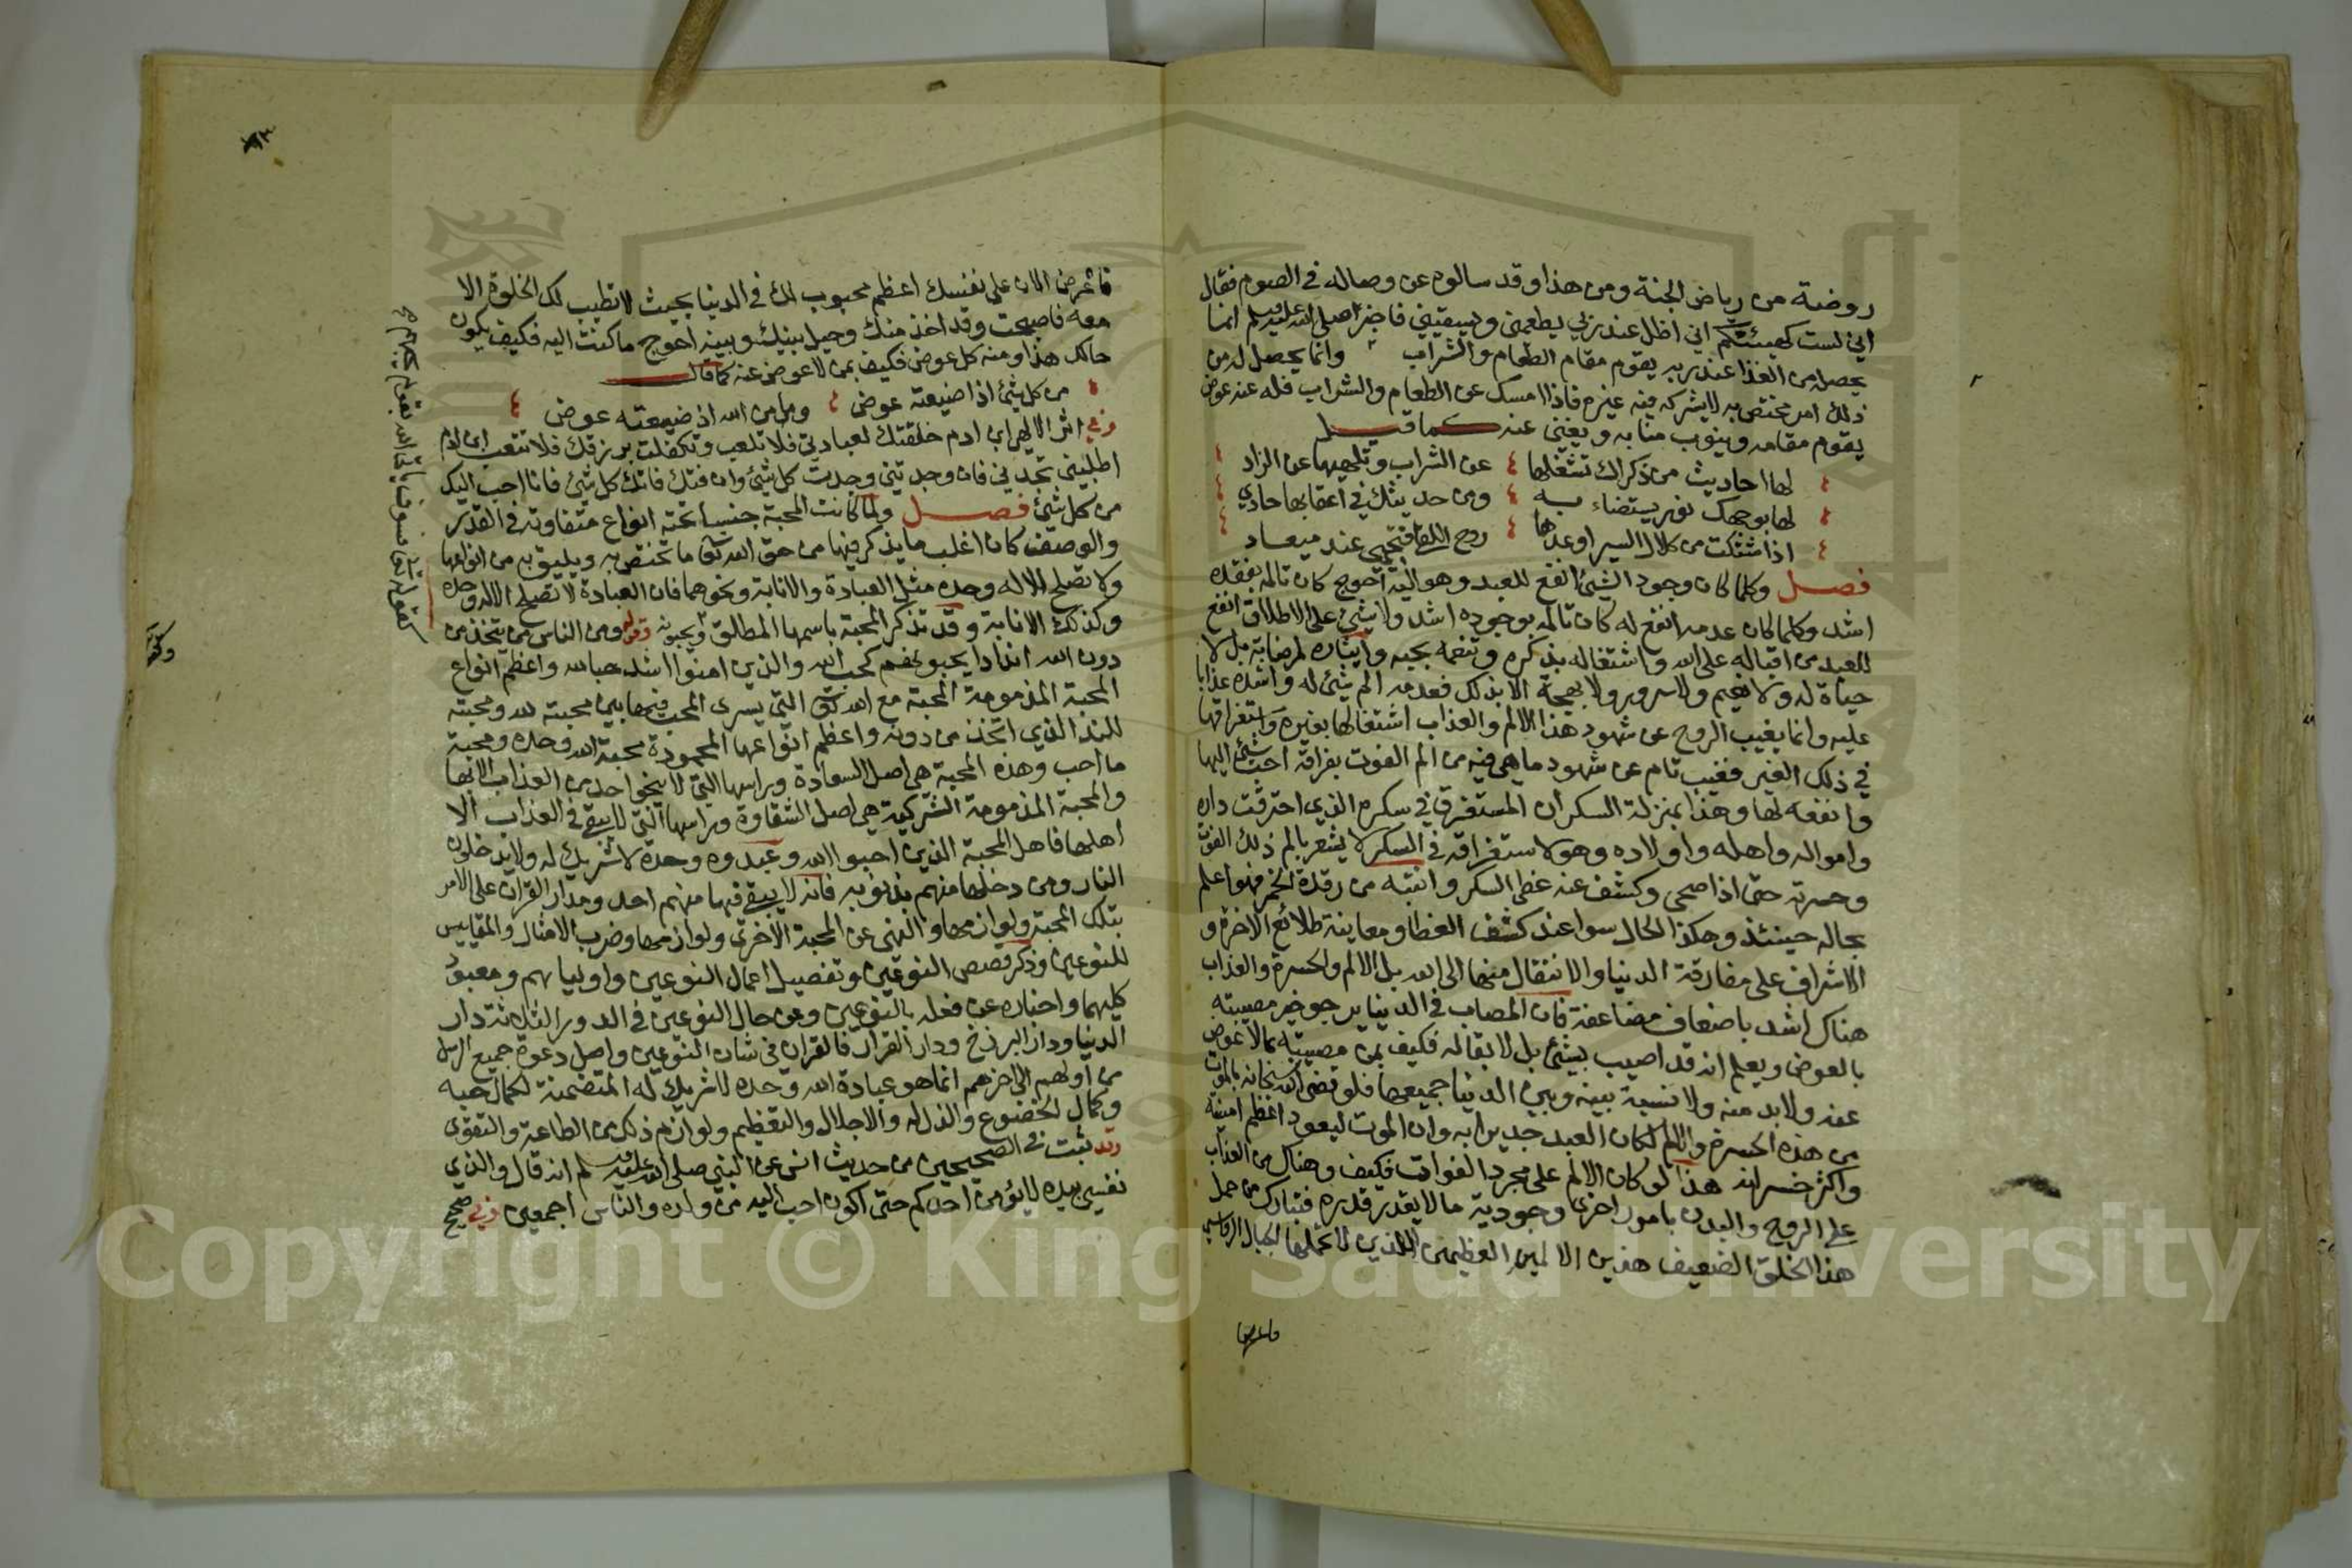 روضة من رياض الجنة ومن هذا وقد سالوه عن وصاله في الصوم فقال
اني لست كهيئتكم اني اظل عند ربي يطعمني ويسقيني فاخبر صلى الله عليه وسلم ان ما
يحصل من الغذا عند ربه يقوم مقام الطعام والشراب وانما يحصل له من
ذلك امر مختص به لا يشركه فيه غيره فاذا امسك عن الطعام والشراب فله عنه عوض
يقوم مقامه وينوب منابه ويغني عنه كما قيل
لها احاديث من ذكراك تشغلها عن الشراب وتلهيها عن الزاد
لها بوجهك نور يستضاء به ومن حديثك في اعقابها حادي
اذا شتكت من كلال السير اوعدها روح اللقا فتحيي عند ميعاد
فصل وكلما كان وجود الشيئ انفع للعبد وهو اليه احوج كان تالمه بفقده
اشد وكلما كان عدمه انفع له كان تالمه بوجوده اشد ولا شيئ على الاطلاق انفع
للعبد من اقباله على الله واشتغاله بذكره وتنعمه بحبه وايثاره لمرضاته بل لا
حياة له ولا نعيم ولا سرور ولا بهجة الا بذلك فعدمه الم شيئ له واشده عذابا
عليه وانما يغيب الروح عن شهود هذا الالم والعذاب اشتغالها بغيره واستغراقها
في ذلك الغير فتغيب تام عن شهود ما هي فيه من الم الفوت بفراقه احب شيئ اليها
وانفعه لها وهذا بمنزلة السكران المستغرق في سكره الذي احترقت داره
وامواله واهله واولاده وهو لاستغراقه في السكر لا يشعر بالم ذلك الفوت
وحسرته حتى اذا صحى وكشف عنه غطى السكر وانتبه من رقدة الخمر فهو اعلم
بحاله حينئذ وهكذا الحال سوا عند كشف الغطا ومعاينة طلائع الاخرة و
الاشراف على مفارقة الدنيا والانتقال منها الى الله بل الالم والحسرة والعذاب
هناك اشد باضعاف مضاعفة فان المصاب في الدنيا يرجو خير مصيبته
بالعوض ويعلم انه قد اصيب بشيئ بل لا بقا له فكيف بمن مصيبته بما لا عوض
عنه ولا بد منه ولا نسبة بينه وبين الدنيا جميعها فلو قضى الله سبحانه بالموت
من هذه الحسرة والالم لكان العبد جديرا به وان الموت ليعود اعظم امنيته
واكثر خسراته هذا لو كان الالم على مجرد الفوات فكيف وهناك من العذاب
على الروح والبدن بامور اخرى وجودية ما لا يقدر قدره فتبارك من حمل
هذا الخلق الضعيف هذين الالمين العظيمين اللذين لا تحملها الجبال الرواسي
فاعرض
فاعرض الان على نفسك اعظم محبوب لك في الدنيا بحيث لا تطيب لك الخلوة الا
معه فاصبحت وقد اخذ منك وحيل بينك وبينه احوج ما كنت اليه فكيف يكون
حالك هذا ومنه كل عوض فكيف بمن لا عوض عنه كما قال
من كل شيئ اذا ضيعته عوض وما من الله اذ ضيعته عوض
وفي اثر الالهي ابن ادم خلقتك لعبادتي فلا تلعب وتكفلت برزقك فلا تتعب ابن ادم
اطلبني تجدني فان وجدتني وجدت كل شيئ وان فتك فاتك كل شيئ فانا احب اليك
من كل شيئ فصل ولما كانت المحبة جنسا تحته انواع متفاوتة في القدر
والوصف كان اغلب ما يذكر فيها من حق الله تعالى ما تختص به ويليق به من انواعها
ولا تصلح الا له وحده مثل العبادة والانابة ونحوهما فان العبادة لا تصلح الا له وحده
وكذلك الانابة وقد تذكر المحبة باسمها المطلق ويحبونه وقوله ومن الناس من يتخذ من
دون الله اندادا يحبونهم كحب الله والذين امنوا اشد حبا لله واعظم انواع
المحبة المذمومة المحبة مع الله تعالى التي يسوى المحب فيها بين محبته لله ومحبته
للند الذي اتخذ من دونه واعظم انواعها المحمودة محبة الله وحده ومحبة
ما احب وهذه المحبة هي اصل السعادة وراسها التي لا ينجو احد من العذاب الا بها
والمحبة المذمومة الشركية هي اصل الشقاوة وراسها التي لا يبقى في العذاب الا
اهلها فاهل المحبة الذين احبوا الله وعبدوه وحده لا شريك له ولا يدخلون
النار ومن دخلها منهم بذنوبه فانه لا يبقى فيها منهم احد ومدار القران على الامر
بتلك المحبة ولوازمها والنهي عن المحبة الاخرى ولوازمها وضرب الامثال والمقاييس
للنوعين وذكر قصص النوعين وتفصيل اعمال النوعين واوليايهم ومعبود
كليهما واخباره عن فعله بالنوعين وعن حال النوعين في الدور الثلاثة دار
الدنيا ودار البرزخ ودار القرار فالقران في شان النوعين واصل دعوة جميع الرسل
من اولهم الى اخرهم انما هو عبادة الله وحده لا شريك له المتضمنة لكمال حبه
وكمال الخضوع والذل له والاجلال والتعظيم ولوازم ذلك من الطاعة والتقوى
وقد ثبت في الصحيحين من حديث انس عن النبي صلى الله عليه وسلم انه قال والذي
نفسي بيده لا يؤمن احدكم حتى اكون احب اليه من ولده والناس اجمعين وفي صحيح
كقوله تعالى فسوف ياتي الله بقوم يحبهم
Copyright © King Saud University